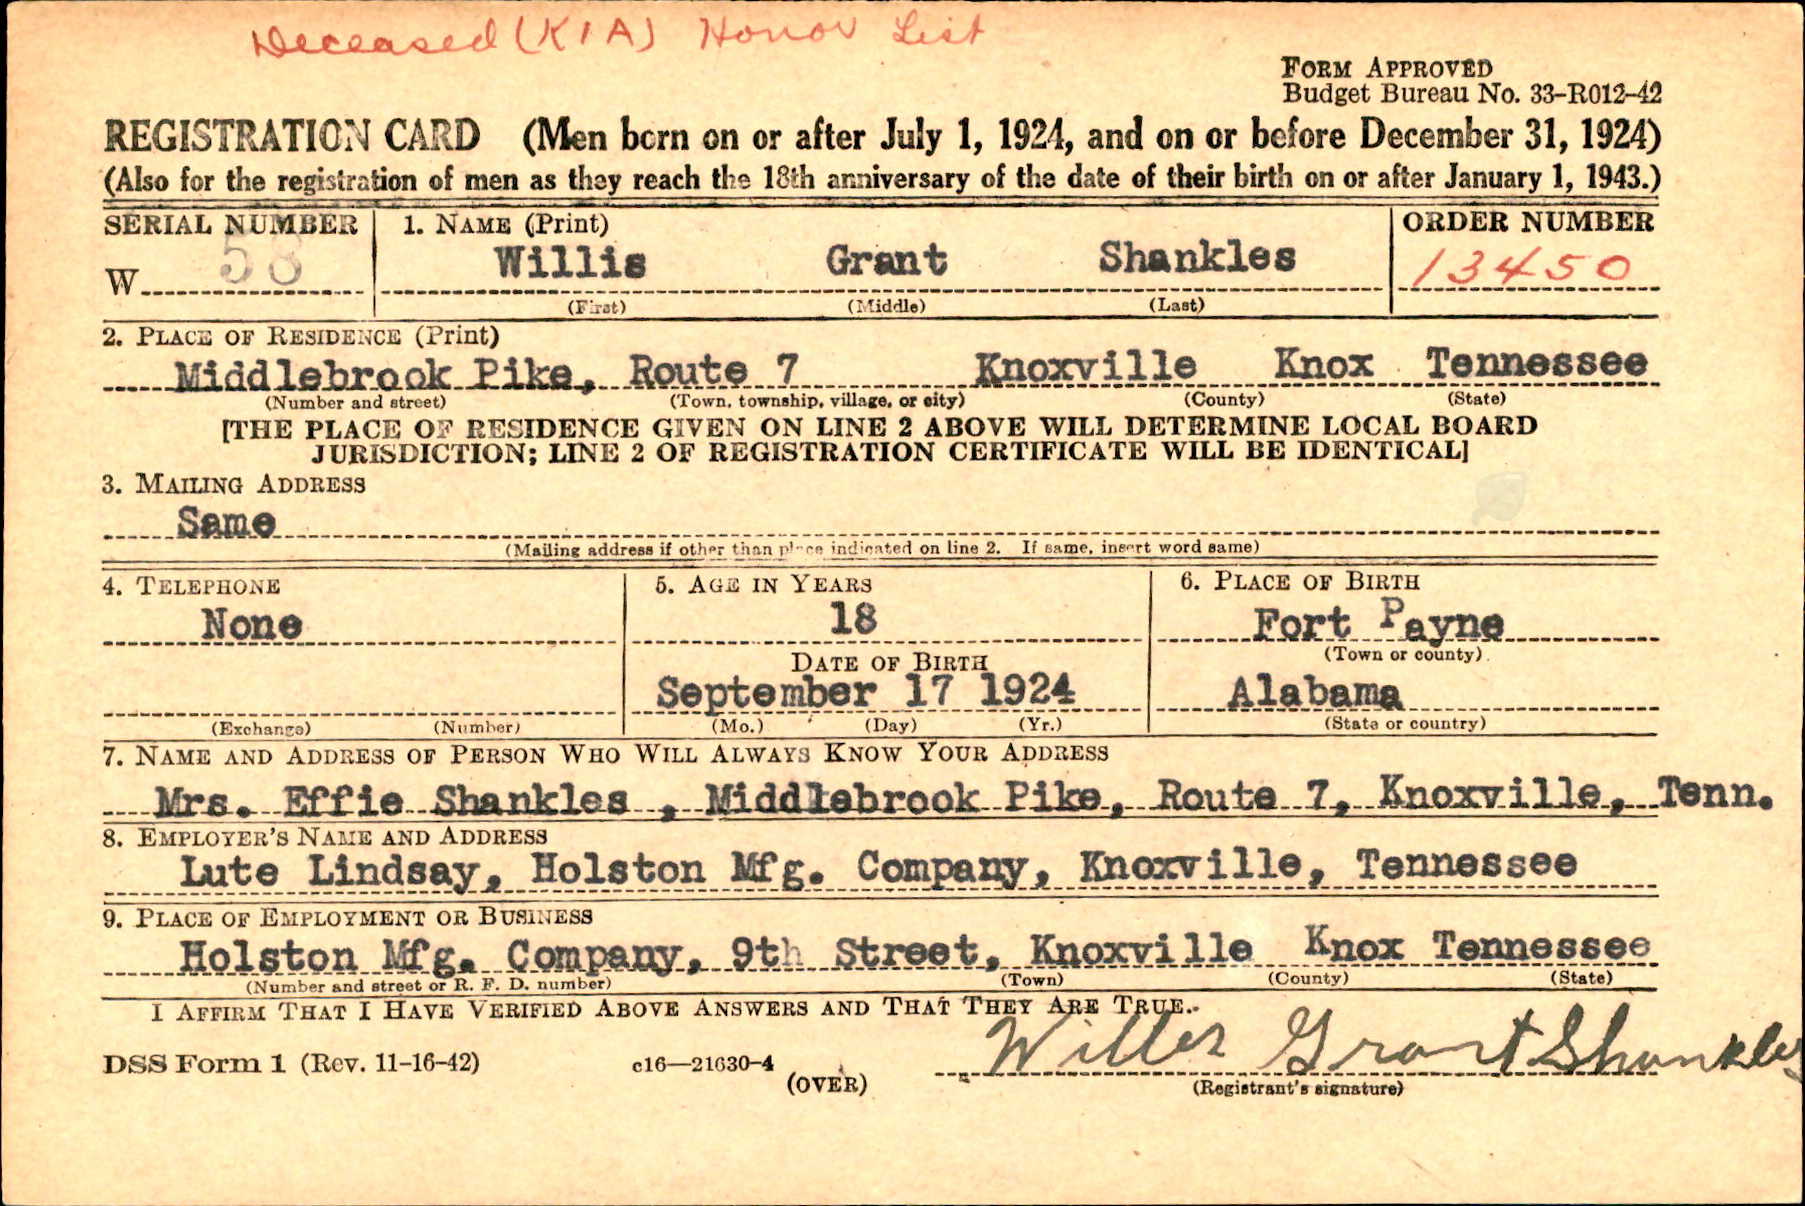 Deceased (KIA) Honor List
FORM APPROVED
Budget Bureau No. 33-R012-42
REGISTRATION CARD (Men born on or after July 1, 1924, and on or before December 31, 1924)
(Also for the registration of men as they reach the 18th anniversary of the date of their birth on or after January 1, 1943.)
SERIAL NUMBER 1. NAME (Print) ORDER NUMBER
W 58 Willis Grant Shankles 13450
(First) (Middle) (Last)
2. PLACE OF RESIDENCE (Print)
Middlebrook Pike, Route 7 Knoxville Knox Tennessee
(Number and street) (Town, township, village, or city) (County) (State)
[THE PLACE OF RESIDENCE GIVEN ON LINE 2 ABOVE WILL DETERMINE LOCAL BOARD
JURISDICTION; LINE 2 OF REGISTRATION CERTIFICATE WILL BE IDENTICAL]
3. MAILING ADDRESS
Same
(Mailing address if other than place indicated on line 2. If same, insert word same)
4. TELEPHONE 5. AGE IN YEARS 6. PLACE OF BIRTH
None 18 Fort Payne
DATE OF BIRTH (Town or county)
September 17 1924 Alabama
(Exchange) (Number) (Mo.) (Day) (Yr.) (State or country)
7. NAME AND ADDRESS OF PERSON WHO WILL ALWAYS KNOW YOUR ADDRESS
Mrs. Effie Shankles , Middlebrook Pike, Route 7, Knoxville, Tenn.
8. EMPLOYER'S NAME AND ADDRESS
Lute Lindsay, Holston Mfg. Company, Knoxville, Tennessee
9. PLACE OF EMPLOYMENT OR BUSINESS
Holston Mfg. Company, 9th Street, Knoxville Knox Tennessee
(Number and street or R. F. D. number) (Town) (County) (State)
I AFFIRM THAT I HAVE VERIFIED ABOVE ANSWERS AND THAT THEY ARE TRUE.
DSS Form 1 (Rev. 11-16-42) c16—21630-4 (OVER) Willis Grant Shankles
(Registrant's signature)